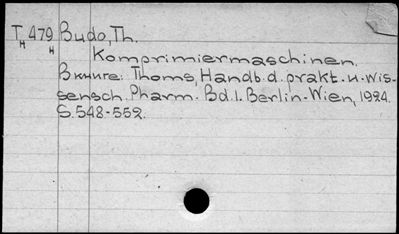 T 479 Budo, Th.
н н
Komprimiermaschinen.
В книге: Thoms, Handb. d. prakt. u. wis-
sensch. Pharm. Bd. 1. Berlin-Wien, 1924.
S. 548-552.